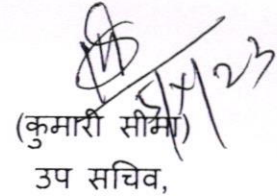 5/4/23
(कुमारी सीमा)
उप सचिव,